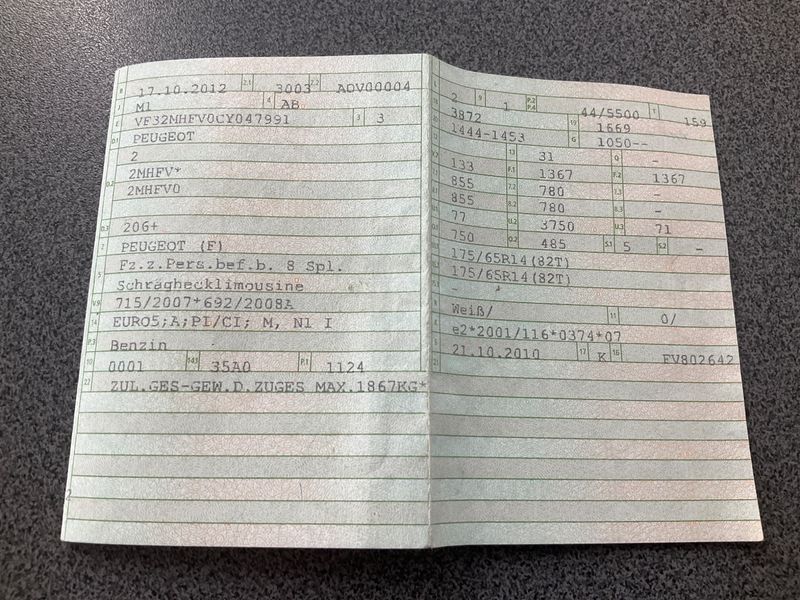 B 17.10.2012 2.1 3003 2.2 ADV00004
J M1 4 AB
E VF32MHFV0CY047991 3 3
D.1 PEUGEOT
2
D.2 2MHFV*
2MHFV0
D.3 206+
2 PEUGEOT (F)
5 Fz.z.Pers.bef.b. 8 Spl.
Schräghecklimousine
V.9 715/2007*692/2008A
14 EURO5;A;PI/CI; M, N1 I
P.3 Benzin
10 0001 14.1 35A0 P.1 1124
22 ZUL.GES-GEW.D.ZUGES MAX.1867KG*
L 2 9 1 P.2 P.4 44/5500 T 159
18 3872 19 1669
20 1444-1453 G 1050--
12 - 13 31 Q -
V.7 133 F.1 1367 F.2 1367
7.1 855 7.2 780 7.3 -
8.1 855 8.2 780 8.3 -
U.1 77 U.2 3750 U.3 71
O.1 750 O.2 485 S.1 5 S.2 -
15.1 175/65R14(82T)
15.2 175/65R14(82T)
15.3 -
R Weiß/ 11 0/
K e2*2001/116*0374*07
6 21.10.2010 17 K 16 FV802642
21